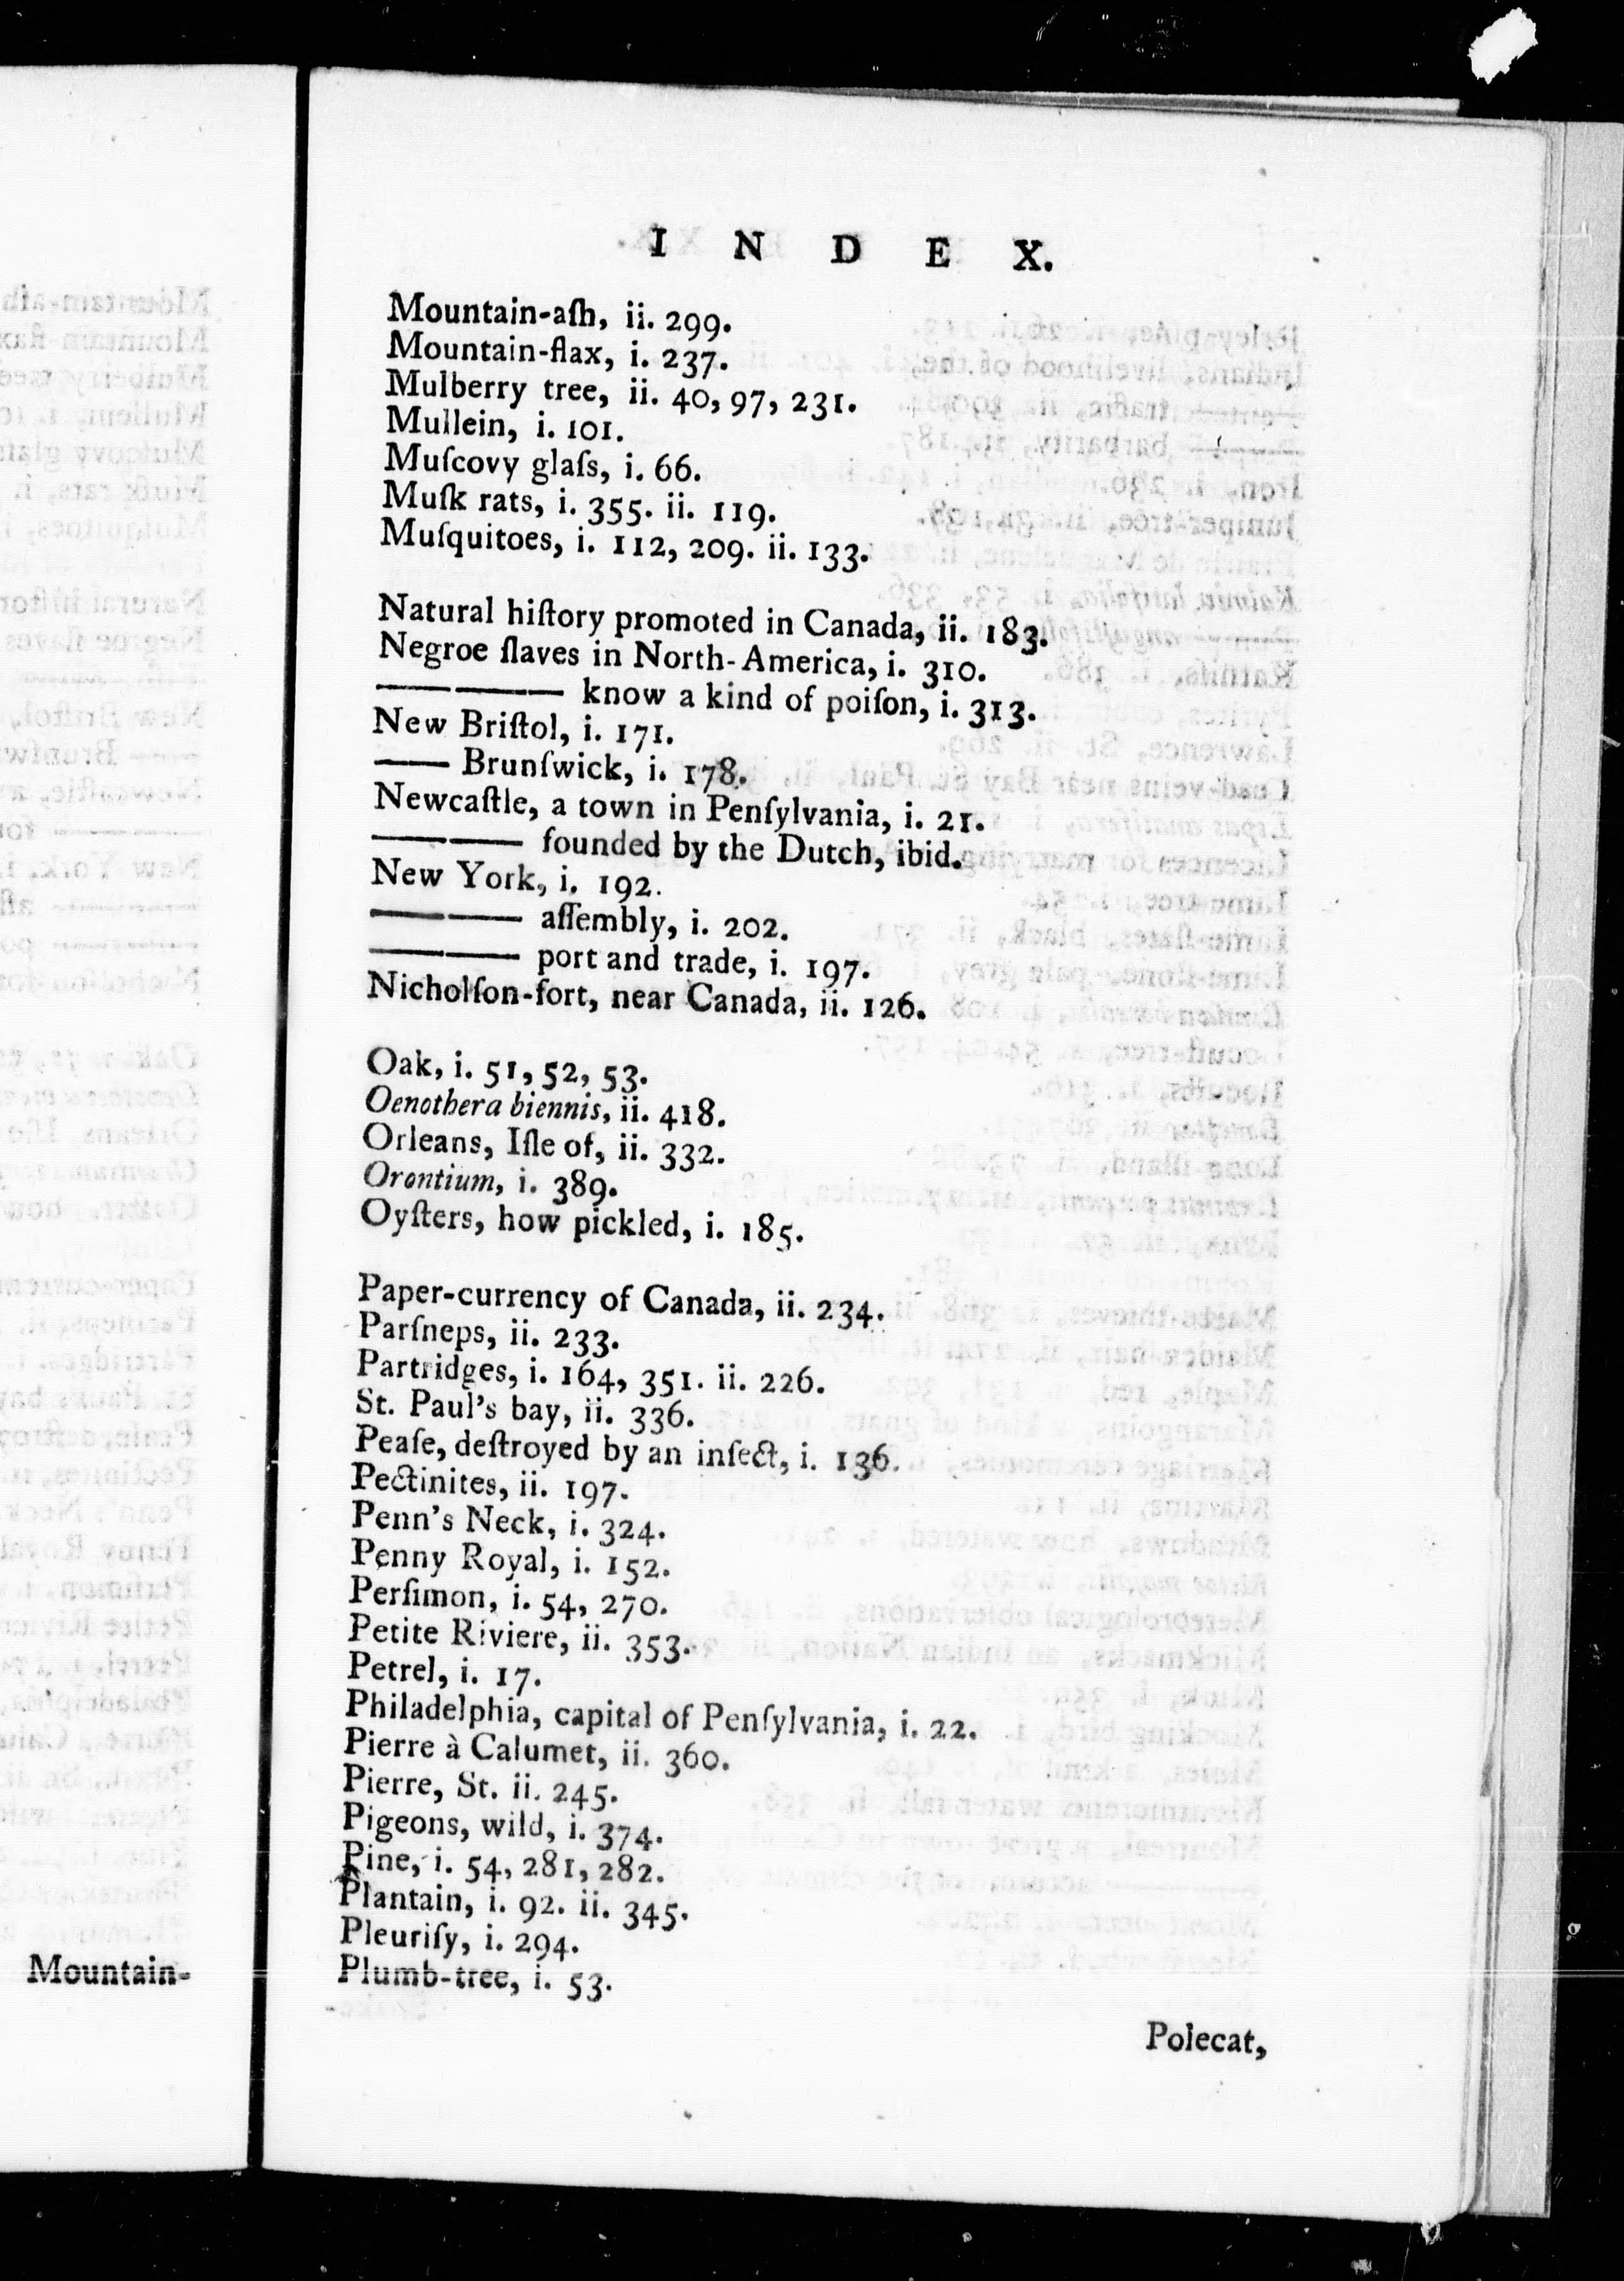 I N D E X.
Mountain-aſh, ii. 299.
Mountain-flax, i. 237.
Mulberry tree, ii. 40, 97, 231.
Mullein, i. 101.
Muſcovy glaſs, i. 66.
Muſk rats, i. 355. ii. 119.
Muſquitoes, i. 112, 209. ii. 133.
Natural hiſtory promoted in Canada, ii. 183.
Negroe ſlaves in North-America, i. 310.
—— —— know a kind of poiſon, i. 313.
New Briſtol, i. 171.
—— Brunſwick, i. 178.
Newcaſtle, a town in Penſylvania, i. 21.
—— —— founded by the Dutch, ibid.
New York, i. 192.
—— —— aſſembly, i. 202.
—— —— port and trade, i. 197.
Nicholſon-fort, near Canada, ii. 126.
Oak, i. 51, 52, 53.
Oenothera biennis, ii. 418.
Orleans, Iſle of, ii. 332.
Orontium, i. 389.
Oyſters, how pickled, i. 185.
Paper-currency of Canada, ii. 234.
Parſneps, ii. 233.
Partridges, i. 164, 351. ii. 226.
St. Paul's bay, ii. 336.
Peaſe, deſtroyed by an inſect, i. 136.
Pectinites, ii. 197.
Penn's Neck, i. 324.
Penny Royal, i. 152.
Perſimon, i. 54, 270.
Petite Riviere, ii. 353.
Petrel, i. 17.
Philadelphia, capital of Penſylvania, i. 22.
Pierre à Calumet, ii. 360.
Pierre, St. ii. 245.
Pigeons, wild, i. 374.
Pine, i. 54, 281, 282.
Plantain, i. 92. ii. 345.
Pleuriſy, i. 294.
Plumb-tree, i. 53.
Polecat,
Mountain-